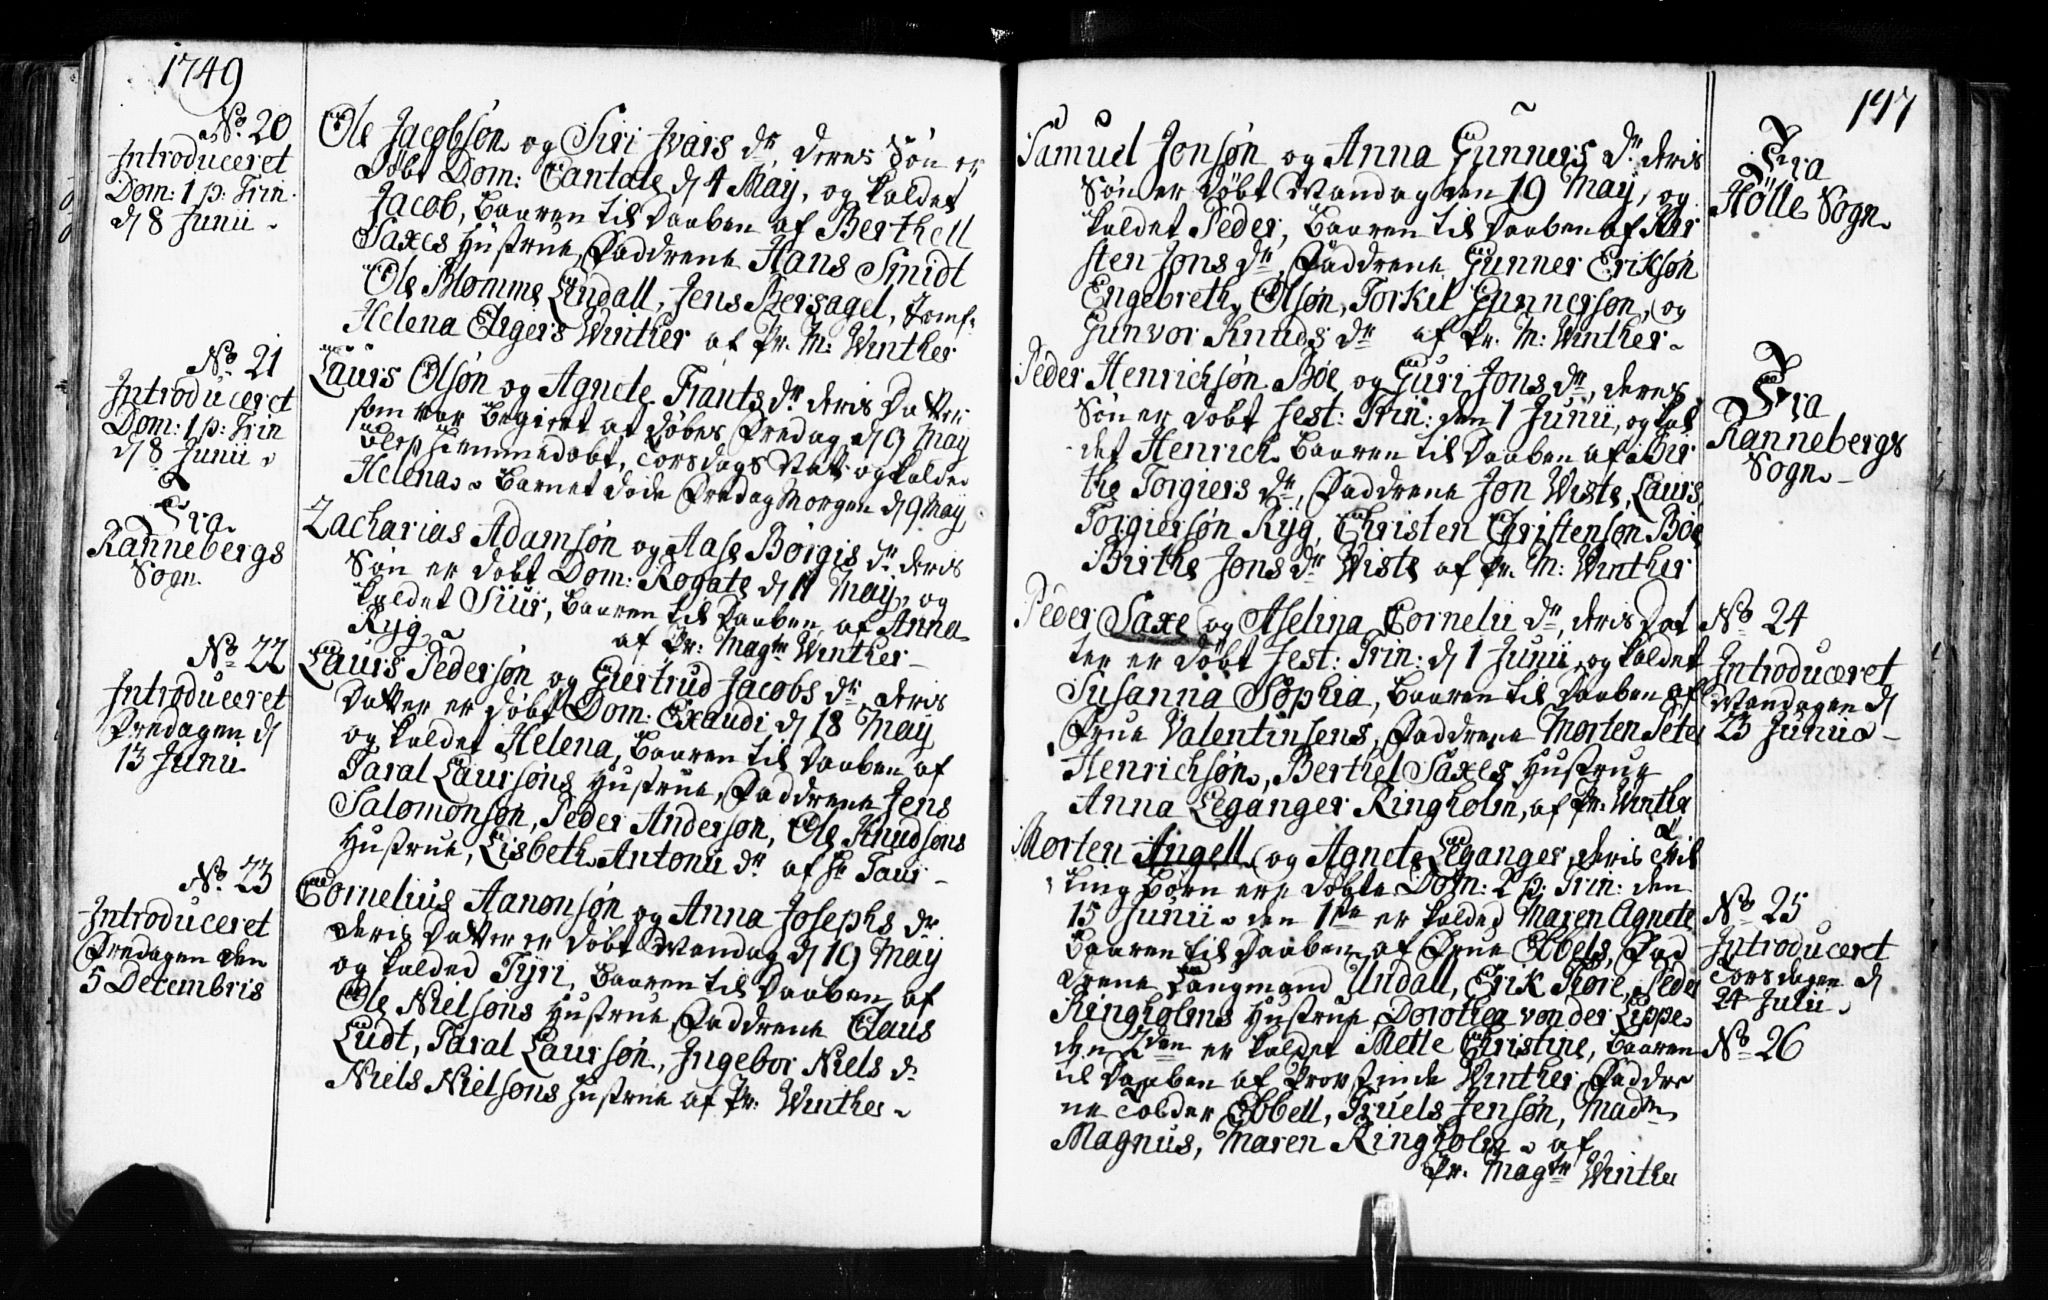 1749
No. 20
Introduceret
Dom: 1 p: Trin.
d 8 Junii
Ole Jacobsøn og Siri Ivars dr, deres Søn er
døbt Dom: Cantate d 4 May, og kaldet
Jacob, baaren til Daaben af Berthell
Saxes Hustrue, Faddrene Hans Smidt
Ole Blomme Lindall, Jens Bersagel, Jomf:
Helena Elgers Winther af Pr. M: Winther
No. 21
Introduceret
Dom: 1 p: Trin
d 8 Junii
Laurs Olsøn og Agnete Frants dr deris Datter
som var begiert at døbes Fredag d 9 May
blef hiemmedøbt, Torsdags Nat og kaldet
Helena. Barnet døde Fredag Morgen d 9 May
Fra
Rannebergs
Sogn
Zacharias Adamsøn og Aase Børgis dr deris
Søn er døbt Dom: Rogate d 11 May, og
kaldet Siur, baaren til Daaben af Anna
Ryg af Pr: Magtr Winther
No. 22
Introduceret
Fredagen d
13 Junii
Laurs Pedersøn og Giertrud Jacobs dr deris
Datter er døbt Dom: Exaudi d 18 May
og kaldet Helena, baaren til Daaben af
Taral Laursøns Hustrue, Faddrene Jens
Salomonsøn, Peder Andersøn, Ole Knudsøns
Hustrue, Lisbeth Antonii dr af Hr Taur
No. 23
Introduceret
Fredagen den
5 Decembris
Cornelius Aanonsøn og Anna Josephs dr
deris Datter er døbt Mandag d 19 May
og kalded Tyri, baaren til Daaben af
Ole Nielsøns Hustrue Faddrene Claus
Ludt, Taral Laursøn, Ingebor Niels dr
Niels Nielsøns Hustrue af Pr: Winther
197
Samuel Jonsøn og Anna Gunners dr. deris
Søn er døbt Mandag den 19 May, og
kaldet Peder, baaren til Daaben af Kir
sten Jons dr, Faddrene Gunner Eriksøn
Engebreth Olsøn, Torkil Gunnersøn, og
Gunvor Knuds dr af Pr. M: Winther
Fra
Hølle Sogn
Peder Henrichsøn Bøe og Guri Jons dr, deres
Søn er døbt Fest: Trin: den 1 Junii, og kal
det Henrich baaren til Daaben af Bir
the Torgiers dr, Faddrene Jon Wiste, Laurs
Torgiersøn Ryg, Christen Christensøn Bøe
Birthe Jons dr Wiste af Pr. M: Winther
Fra
Rannebergs
Sogn
Peder Saxe og Aselina Cornelii dr, deris Dat
ter er døbt Fest: Trin: d 1 Junii, og kaldet
Susanna Sophia, baaren til Daaben af
Frue Valentinsens, Faddrene Morten Peter
Henrichsøn, Berthel Saxes Hustrue
Anna Leganger Ringholm, af Pr: Winther
No 24
Introduceret
Mandagen d
23 Junii
Morten Angell og Agnete Leganger, deris Tvil
ling børn ere døbte Dom: 2 p: Trin: den
15 Junii den 1ste er kalded Maren Agnete
baaren til Daaben af Frue Ebbels, Fad
drene Laugmand Undall, Erik Krøre, Peder
Ringholms Hustrue Dorothea von der Lippe
den 2den er kaldet Mette Christine, baaren
til Daaben af Provstinde Winther, Faddre
ne Tolder Ebbell, Truels Jensøn, Madm
Magnus, Maren Ringholm af
Pr. Magtr Winther
No 25
Introduceret
Torsdagen d
24 Julii
No 26